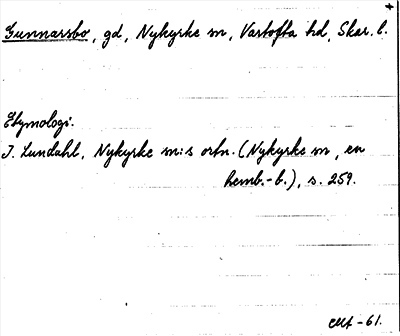 +
Gunnarsbo, gd, Nykyrke sn, Vartofta hd, Skar. l.
Etymologi:
I. Lundahl, Nykyrke sn:s ortn. (Nykyrke sn, en
hemb.-b.), s. 259.
-61.